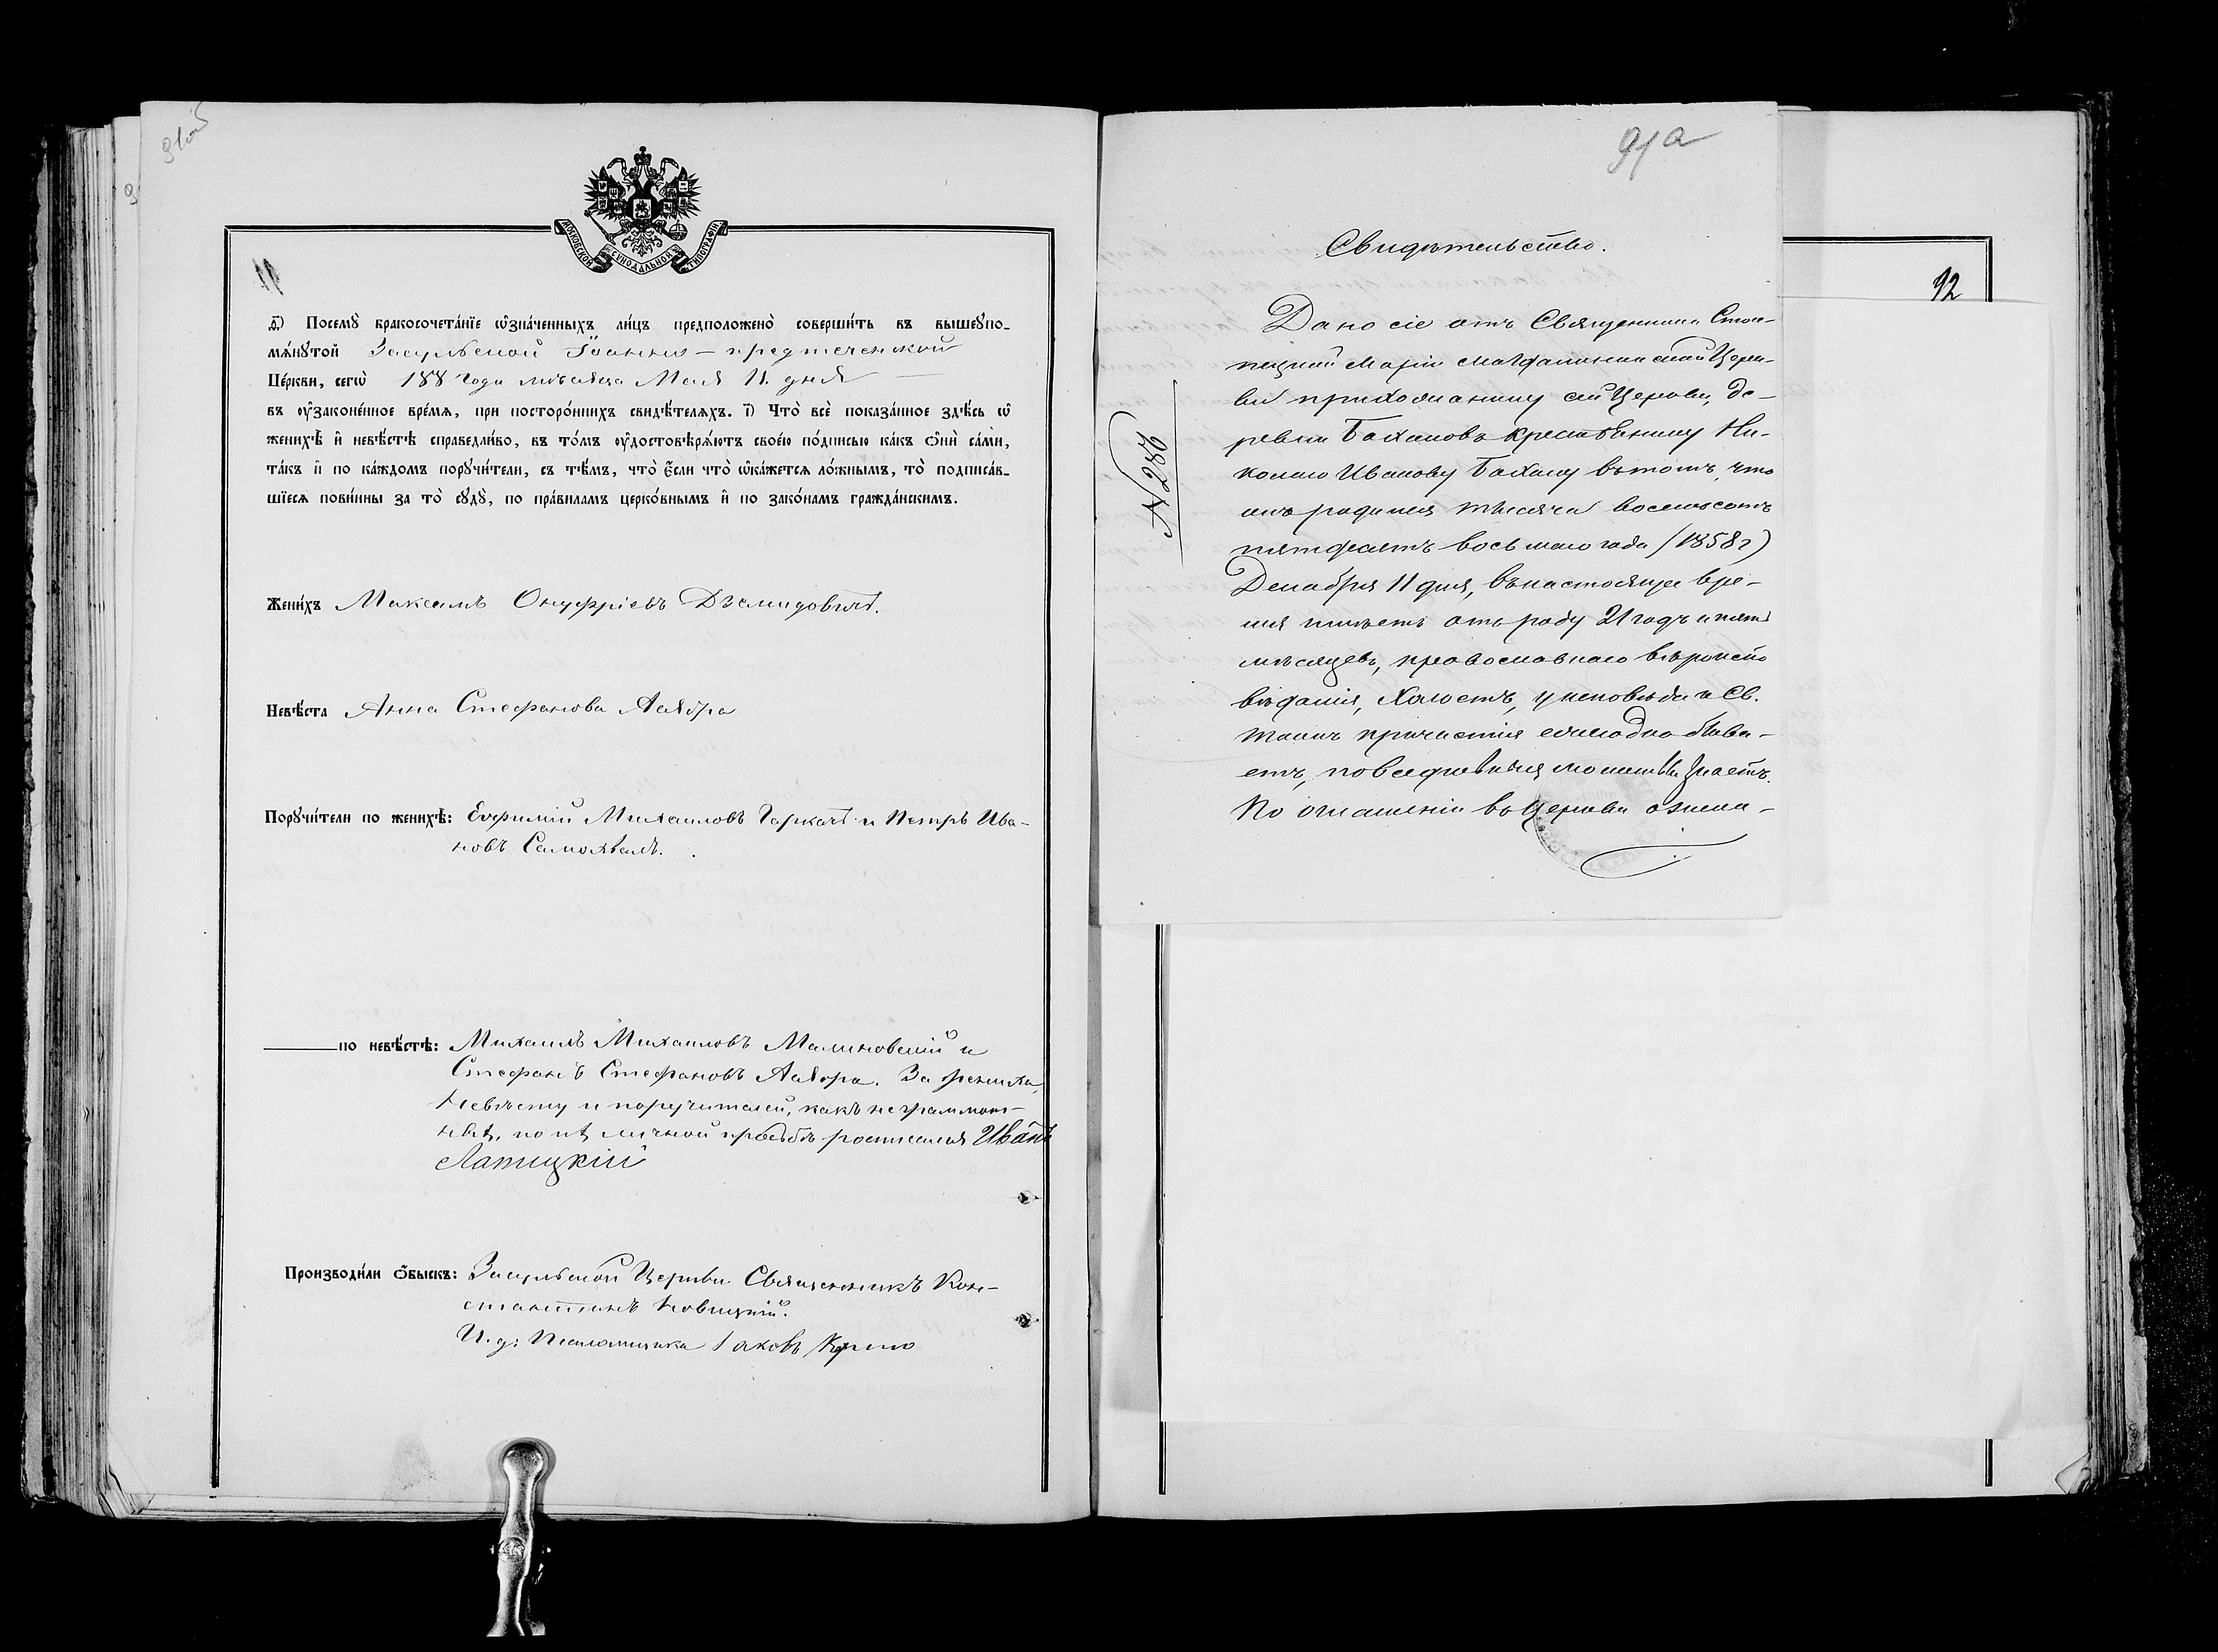 91об
МОСКОВСКОЙ СУНОДАЛЬНОЙ ТИПОГРАФІИ
11
д҃) Посемꙋ̀ бракосочета́нїе ѡ҆зна́ченныхъ ли́цъ предположено̀ соверши́ть въ вышеꙋпо-
мѧ́нꙋтой Засульской Іоанно-предтеченской
Це́ркви, сегѡ̀ 188 года мѣсяца Мая 11. дня
въ ᲂу҆законе́нное вре́мѧ, при посторо́ннихъ свидѣ́телѧхъ. і҃) Что̀ всѐ пока́занное здѣ́сь ѡ҆
женихѣ̀ и҆ невѣ́стѣ справедли́во, въ то́мъ ᲂу҆достовѣрѧ́ютъ свое́ю по́дписью ка́къ ѻ҆нѝ са́ми,
та́къ и҆ по ка́ждомъ порꙋчи́тели, съ тѣ́мъ, что̀ є҆́сли что̀ ѡ҆ка́жетсѧ ло́жнымъ, то̀ подписа́в-
шїесѧ пови́нны за то̀ сꙋдꙋ̀, по пра́виламъ церко́внымъ и҆ по зако́намъ гражда́нскимъ.
Жени́хъ Максимъ Онуфріевъ Дземидовичъ.
Невѣ́ста Анна Стефанова
Порꙋчи́тели по женихѣ̀: Евфимій Михаиловъ Гаркачъ и Петръ Ива-
новъ
по невѣ́стѣ: Михаилъ Михаиловъ Малиновскій и
Стефанъ Стефановъ За жениха,
Невѣсту и поручителей, какъ неграмот-
ныхъ, по ихъ личной просьбѣ росписался Иванъ
Латицкій
Производи́ли ѻ҆́быскъ: Засульской Церкви Священникъ Кон-
стантинъ Новицкій.
И. д: Псаломщика Іаковъ
91а
Свидѣтельство.
N 286
Дано сіе отъ Священника Стол-
пецкой Маріи Магдалининской Церк-
ви прихожанину сей Церкви, де-
ревни Бахановъ крестьянину Ни-
колаю Иванову Бахану въ томъ, что
онъ родился тысяча восемьсотъ
пятдесятъ восьмаго года (1858 г)
Декабря 11 дня, въ настоящее вре-
мя имѣетъ отъ роду 21 годъ и пять
мѣсяцевъ, православнаго вѣроиспо
вѣданія, Холостъ, у исповѣди и Св.
таинъ причастія ежегодно быва-
етъ, повседневныя молитвы знаетъ.
По оглашеніи въ Церкви
92